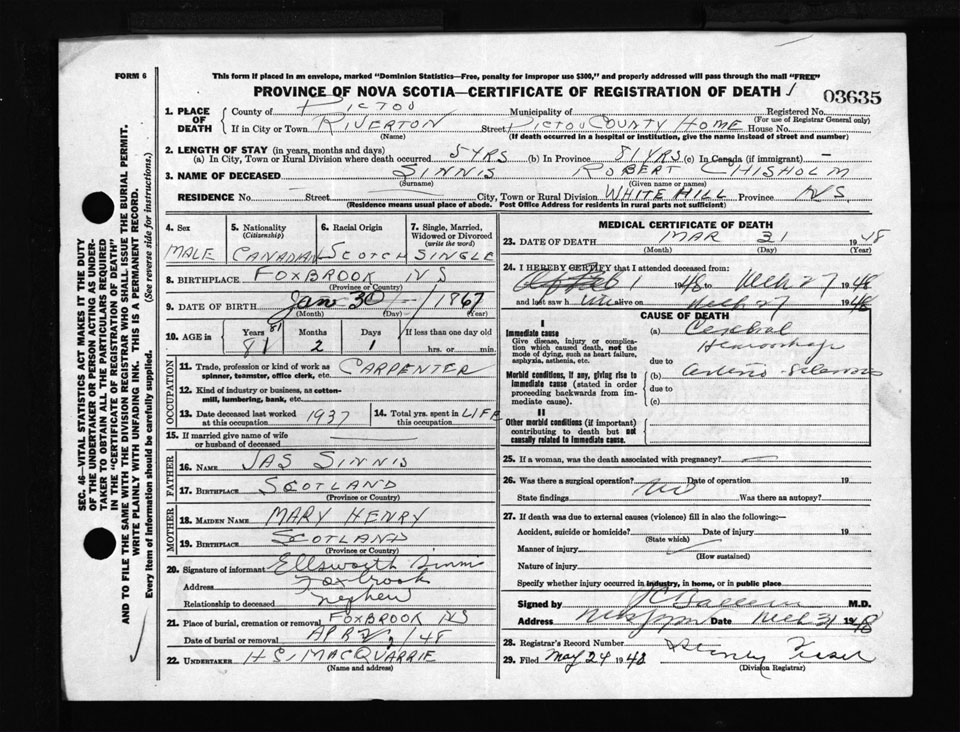 FORM 6
This form if placed in an envelope, marked "Dominion Statistics—Free, penalty for improper use $300," and properly addressed will pass through the mail "FREE"
PROVINCE OF NOVA SCOTIA—CERTIFICATE OF REGISTRATION OF DEATH
03635
1. PLACE OF DEATH
County of PICTOU Municipality of Registered No.
(For use of Registrar General only)
If in City or Town RIVERTON Street PICTOU COUNTY HOME House No.
(Name) (If death occurred in a hospital or institution, give the name instead of street and number)
2. LENGTH OF STAY (in years, months and days)
(a) In City, Town or Rural Division where death occurred 5 YRS (b) In Province 81 YRS (c) In Canada (if immigrant) —
3. NAME OF DECEASED SINNIS ROBERT CHISHOLM
(Surname) (Given name or names)
RESIDENCE No. Street City, Town or Rural Division WHITE HILL Province NS.
(Residence means usual place of abode. Post Office Address for residents in rural parts not sufficient)
4. Sex
MALE
5. Nationality
(Citizenship)
CANADIAN
6. Racial Origin
SCOTCH
7. Single, Married, Widowed or Divorced
(write the word)
SINGLE
8. BIRTHPLACE FOXBROOK NS
(Province or Country)
9. DATE OF BIRTH Jan 30 — 1867
(Month) (Day) (Year)
10. AGE in
Years 81 Months Days If less than one day old
81 2 1 hrs. or min.
OCCUPATION
11. Trade, profession or kind of work as spinner, teamster, office clerk, etc. CARPENTER
12. Kind of industry or business, as cotton-mill, lumbering, bank, etc.
13. Date deceased last worked at this occupation 1937
14. Total yrs. spent in this occupation LIFE
15. If married give name of wife or husband of deceased
FATHER
16. NAME JAS SINNIS
17. BIRTHPLACE SCOTLAND
(Province or Country)
MOTHER
18. MAIDEN NAME MARY HENRY
19. BIRTHPLACE SCOTLAND
(Province or Country)
20. Signature of informant Ellsworth Sinnis
Address Foxbrook
Relationship to deceased nephew
21. Place of burial, cremation or removal FOXBROOK NS
Date of burial or removal APR 2, /48
22. UNDERTAKER H S. MACQUARRIE
(Name and address)
MEDICAL CERTIFICATE OF DEATH
23. DATE OF DEATH MAR 31 1948
(Month) (Day) (Year)
24. I HEREBY CERTIFY that I attended deceased from:
1 1948 to Mch 27 1948
and last saw h im alive on Mch 27 1948
CAUSE OF DEATH
I
Immediate cause
Give disease, injury or complication which caused death, not the mode of dying, such as heart failure, asphyxia, asthenia, etc.
(a) Cerebral Hemorrhage
due to
Morbid conditions, if any, giving rise to immediate cause (stated in order proceeding backwards from immediate cause).
(b) Arterio-Sclerosis
due to
(c)
II
Other morbid conditions (if important) contributing to death but not causally related to immediate cause.
25. If a woman, was the death associated with pregnancy? —
26. Was there a surgical operation? No Date of operation 19
State findings Was there an autopsy?
27. If death was due to external causes (violence) fill in also the following:—
Accident, suicide or homicide? Date of injury 19
(State which)
Manner of injury
(How sustained)
Nature of injury
Specify whether injury occurred in industry, in home, or in public place
Signed by M.D.
Address Date Mch 31 1948
28. Registrar's Record Number
29. Filed May 24 1948 Stanley Fraser
(Division Registrar)
SEC. 46—VITAL STATISTICS ACT MAKES IT THE DUTY
OF THE UNDERTAKER OR PERSON ACTING AS UNDER-
TAKER TO OBTAIN ALL THE PARTICULARS REQUIRED
IN THE "CERTIFICATE OF REGISTRATION OF DEATH"
AND TO FILE THE SAME WITH THE DIVISION REGISTRAR WHO SHALL ISSUE THE BURIAL PERMIT.
WRITE PLAINLY WITH UNFADING INK. THIS IS A PERMANENT RECORD.
Every item of information should be carefully supplied. (See reverse side for instructions.)